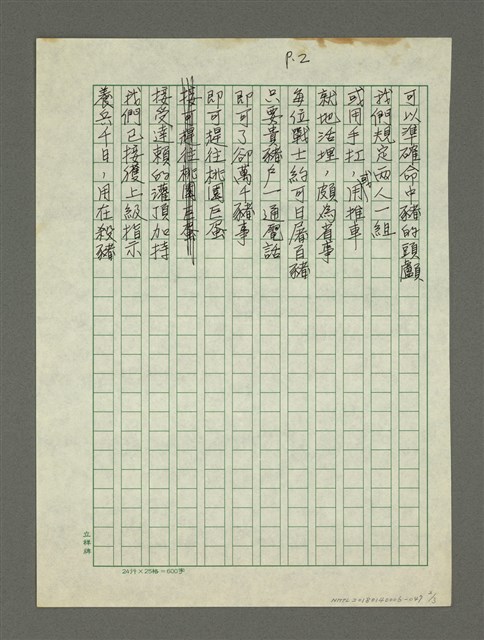 P.2
可以準確命中豬的頭顱
我們規定兩人一組
或用手扛，或用推車
就地活埋，頗為省事
每位戰士約可日屠百豬
只要貴豬戶一通電話
即可了卻萬千豬事
即可趕往桃園巨蛋
接可趕往桃園巨蛋
接受達賴的灌頂加持
我們已接獲上級指示
養兵千日，用在殺豬
立輝牌
24行×25格=600字